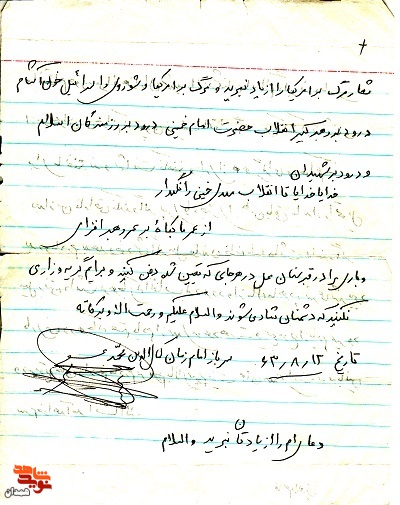 شعار مرگ بر امریکا را از یاد نبرید و مرگ بر امریکا و شوروی و اسرائیل خون آشام
درود بر رهبر کبیر انقلاب حضرت امام خمینی درود بر رزمندگان اسلام
و درود بر شهیدان
خدایا خدایا تا انقلاب مهدی خمینی را نگهدار
از عمر ما بکاه و بر عمر رهبر افزای
و باری مرا در قبرستان محل در هرجای که تعیین شد دفن کنید و برایم گریه و زاری
نکنید که دشمنان شاد می شوند والسلام علیکم و رحمت الله و برکاته
تاریخ ۶۳/۸/۱۲ سرباز امام زمان کمال الدین محمدی
دعای امام را از یادتان نبرید والسلام
شاهد
نوید